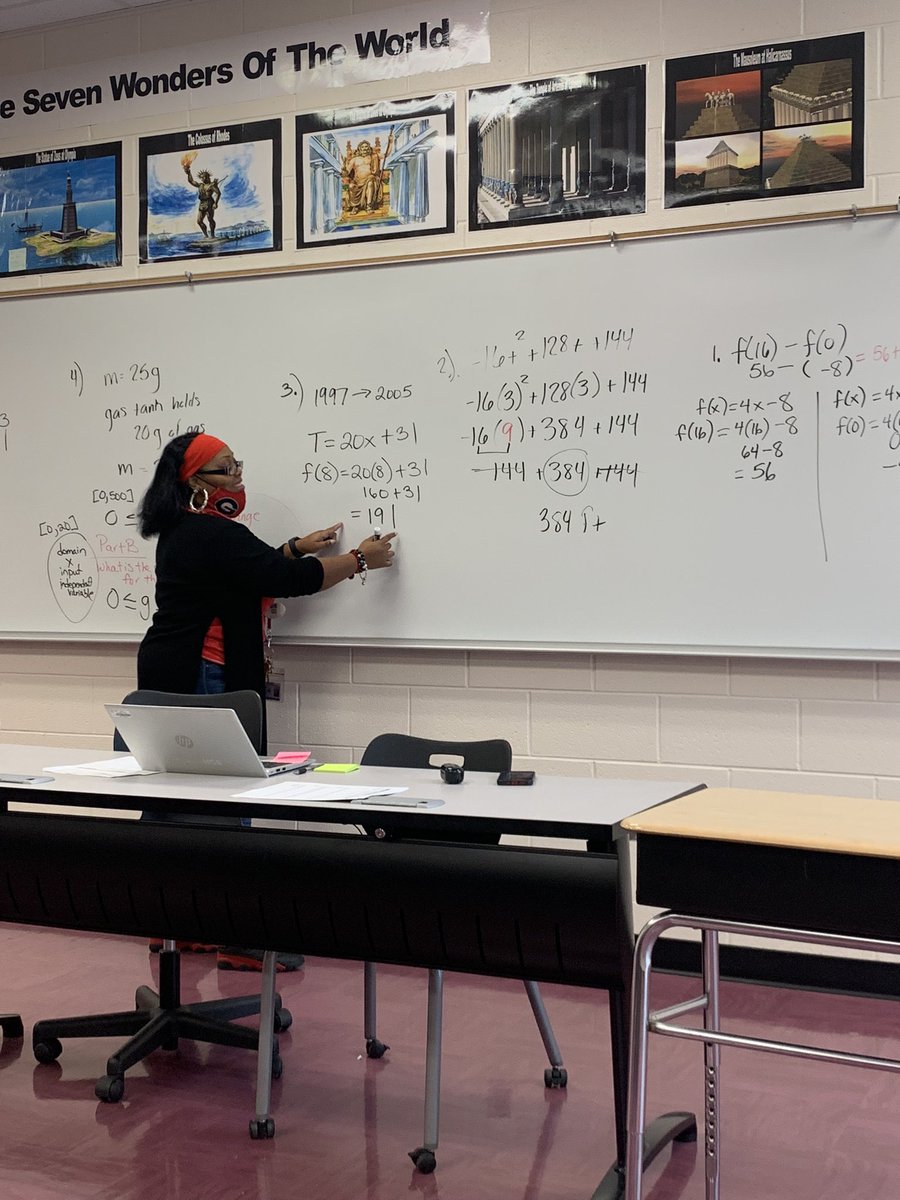 e Seven Wonders Of The World
The Statue of Zeus at Olympia
The Colossus of Rhodes
The Temple of Artemis
The Mausoleum at Halicarnassus
4) m = 25g
gas tank holds
20 g of gas
m =
[0,500]
0 ≤
[0,20]
domain
x
input
independent
variable
Part B
what is the
for th
0 ≤ g
nge
3.) 1997 → 2005
T = 20x + 31
f(8) = 20(8) + 31
160 + 31
= 191
2.) -16t² + 128t + 144
-16(3)² + 128(3) + 144
-16(9) + 384 + 144
-144 + 384 + 144
384 ft
1. f(16) - f(0)
56 - (-8) = 56+
f(x) = 4x - 8
f(16) = 4(16) - 8
64 - 8
= 56
f(x) = 4x
f(0) = 4(
3
1
hp
G